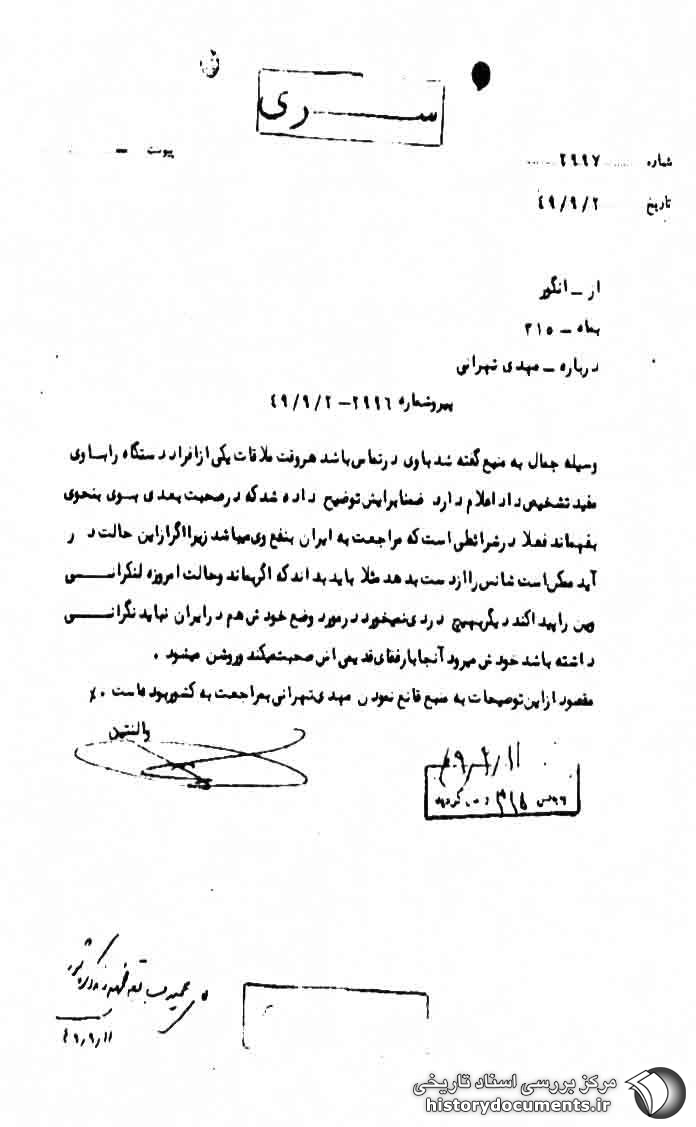 سری
شماره ۲۹۹۷
پیوست -
تاریخ ۴۹/۹/۲
از - انگور
بماه - ۳۱۵
درباره - مهدی تهرانی
پیروشماره ۲۹۹۶-۴۹/۹/۲
وسیله جمال به منبع گفته شد باوی درتماس باشد هروقت ملاقات یکی ازافراد دستگاه رابا وی
مفید تشخیص داد اعلام دارد ضمنابرایش توضیح داده شد که درصحبت بعدی بوی بنحوی
بفهماند فعلا درشرائطی است که مراجعت به ایران بنفع وی میباشد زیرااگرازاین حالت در
آید ممکن است شانس راازدست بدهد مثلا باید بداند که اگربماند وحالت امروزه لنکرانی
وین راپیداکند دیگربهیچ دردی نمیخورد درمورد وضع خودش هم درایران نباید نگرانی
داشته باشد خودش میرود آنجابارفقای قدیمی اش صحبت میکند وروشن میشود .
مقصود ازاین توصیحات به منبع قانع نمودن مهدی تهرانی بمراجعت به کشوربوده است .
والنتین
۴۹/۹/۱۱
۳۱۵
۴۹/۹/۱۱
مرکز بررسی اسناد تاریخی
historydocuments.ir